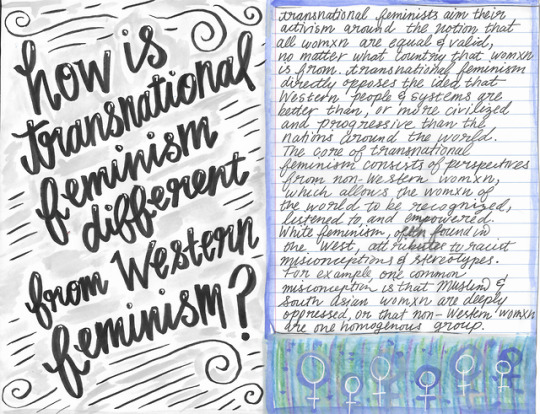 how is
transnational
feminism
different
from Western
feminism?
transnational feminists aim their
activism around the notion that
all womxn are equal & valid,
no matter what country that womxn
is from. transnational feminism
directly opposes the idea that
Western people & systems are
better than, or more civilized
and progressive than the
nations around the world.
The core of transnational
feminism consists of perspectives
from non-Western womxn,
which allows the womxn of
the world to be recognized,
listened to, and empowered.
White feminism, often found in
the West, attributes to racist
misconceptions & stereotypes.
For example, one common
misconception is that Muslim &
South Asian womxn are deeply
oppressed, or that non-Western womxn
are one homogenous group.